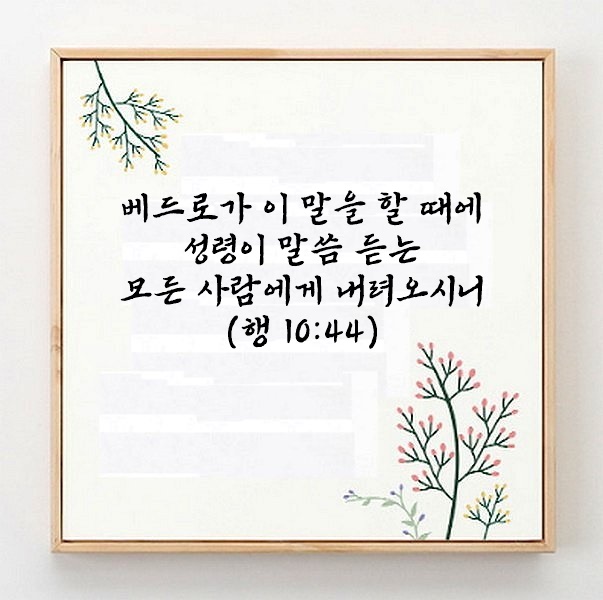 베드로가 이 말을 할 때에
성령이 말씀 듣는
모든 사람에게 내려오시니
(행 10:44)